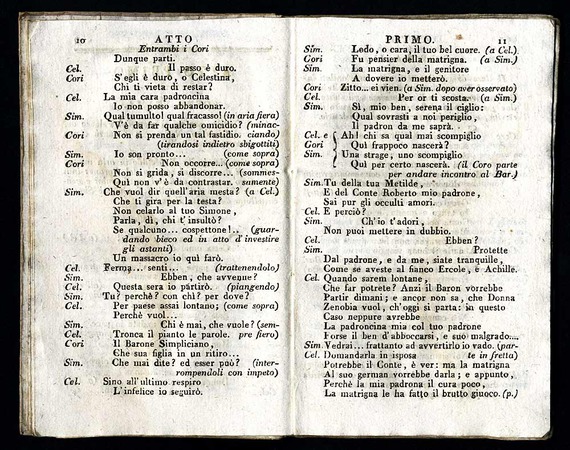 10 ATTO
Entrambi i Cori
Dunque parti.
Cel. Il passo è duro.
Cori S'egli è duro, o Celestina,
Chi ti vieta di restar?
Cel. La mia cara padroncina
Io non posso abbandonar.
Sim. Qual tumulto! qual fracasso! (in aria fiera)
V'è da far qualche omicidio? (minac-
Cori Non si prenda un tal fastidio. ciando)
(tirandosi indietro sbigottiti)
Sim. Io son pronto... (come sopra)
Cori Non occorre... (come sopra)
Non si grida, si discorre... (sommes-
Quì non v'è da contrastar. samente)
Sim. Che vuol dir quell'aria mesta? (a Cel.)
Che ti gira per la testa?
Non celarlo al tuo Simone,
Parla, dì, chi t'insultò?
Se qualcuno... cospettone!.. (guar-
dando bieco ed in atto d'investire
gli astanti)
Un massacro io quì farò.
Cel. Ferma... senti... (trattenendolo)
Sim. Ebben, che avvenne?
Cel. Questa sera io partirò. (piangendo)
Sim. Tu? perchè? con chi? per dove?
Cel. Per paese assai lontano; (come sopra)
Perchè vuol...
Sim. Chi è mai, che vuole? (sem-
Cel. Tronca il pianto le parole. pre fiero)
Cori Il Barone Simpliciano,
Che sua figlia in un ritiro...
Sim. Che mai dite? ed esser può? (inter-
rompendoli con impeto)
Cel. Sino all'ultimo respiro
L'infelice io seguirò.
PRIMO. 11
Sim. Lodo, o cara, il tuo bel cuore. (a Cel.)
Cori Fu pensier della matrigna. (a Sim.)
Sim. La matrigna, e il genitore
A dovere io metterò.
Cori Zitto... ei vien. (a Sim. dopo aver osservato)
Cel. Per or ti scosta. (a Sim.)
Sim. Sì, mio ben, serena il ciglio:
Qual sovrasti a noi periglio,
Il padron da me saprà.
Cel. e Ah! chi sa qual mai scompiglio
Cori Quì frappoco nascerà?
Sim. Una strage, uno scompiglio
Quì per certo nascerà. (il Coro parte
per andare incontro al Bar.)
Sim. Tu della tua Metilde,
E del Conte Roberto mio padrone,
Sai pur gli occulti amori.
Cel. E perciò?
Sim. Ch'io t'adori,
Non puoi mettere in dubbio.
Cel. Ebben?
Sim. Protette
Dal padrone, e da me, siate tranquille,
Come se aveste al fianco Ercole, e Achille.
Cel. Quando sarem lontane,
Che far potrete? Anzi il Baron vorrebbe
Partir dimani; e ancor non sa, che Donna
Zenobia vuol, ch'oggi si parta: in questo
Caso neppure avrebbe
La padroncina mia col tuo padrone
Forse il ben d'abboccarsi, e suo malgrado...
Sim. Vedrai... frattanto ad avvertirlo io vado. (par-
Cel. Domandarla in isposa te in fretta)
Potrebbe il Conte, è ver: ma la matrigna
Al suo german vorrebbe darla; e appunto,
Perchè la mia padrona il cura poco,
La matrigna le ha fatto il brutto giuoco. (p.)